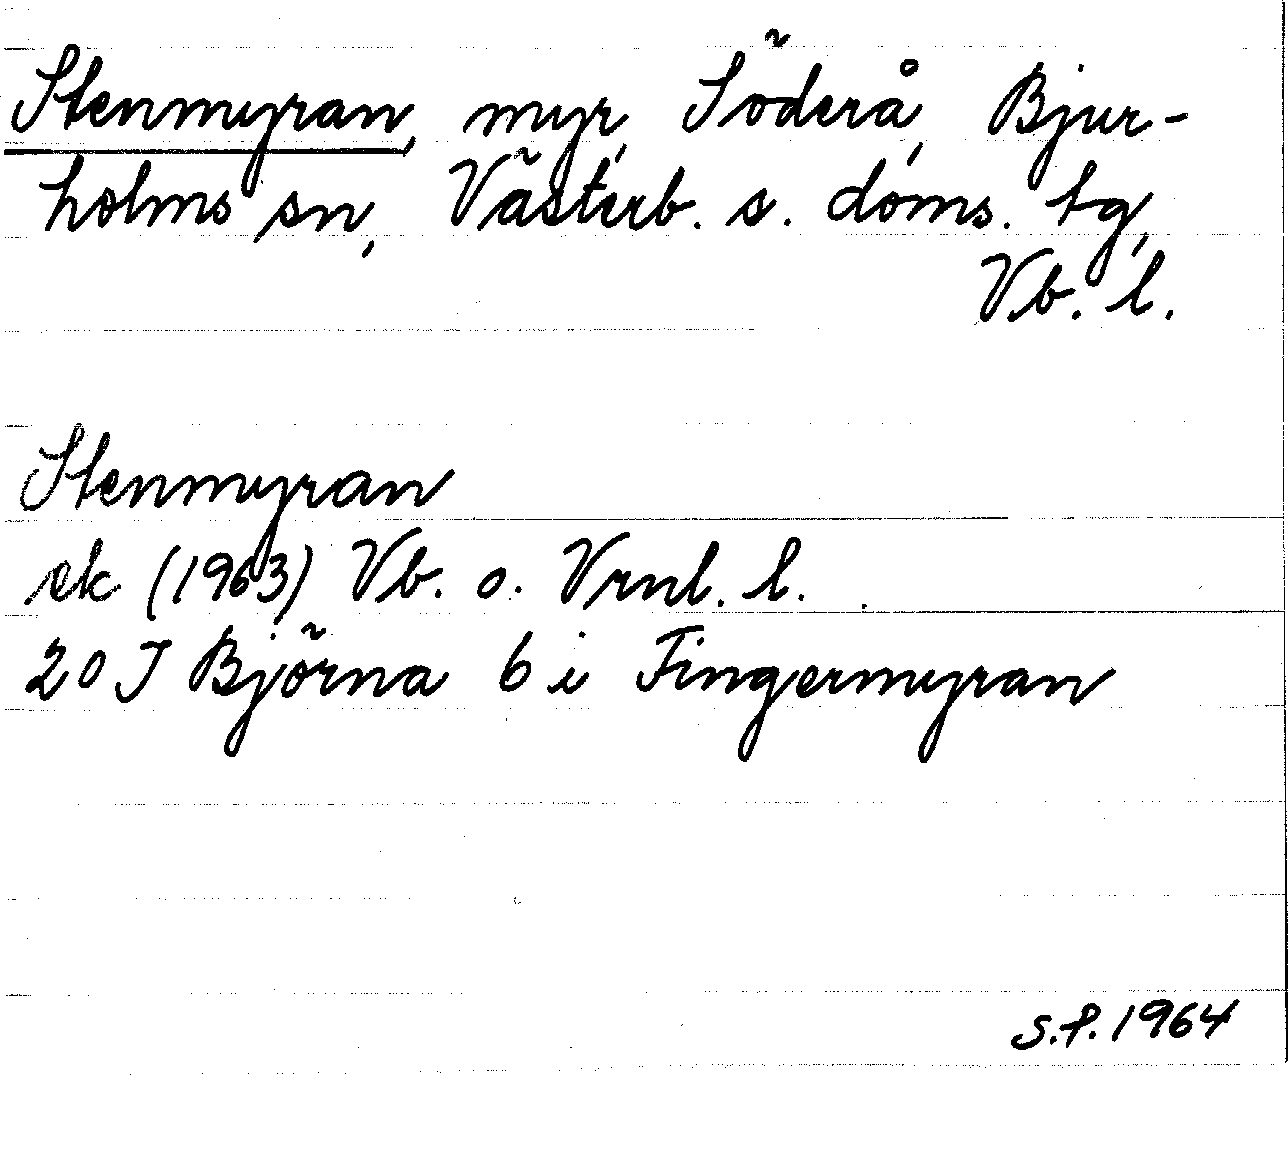 Stenmyran, myr, Söderå, Bjur-
holms sn, Västerb. s. doms. tg,
Vb. l.
Stenmyran
ek (1963) Vb. o. Vrnl. l.
20 J Björna 6 i Fingermyran
S.P. 1964